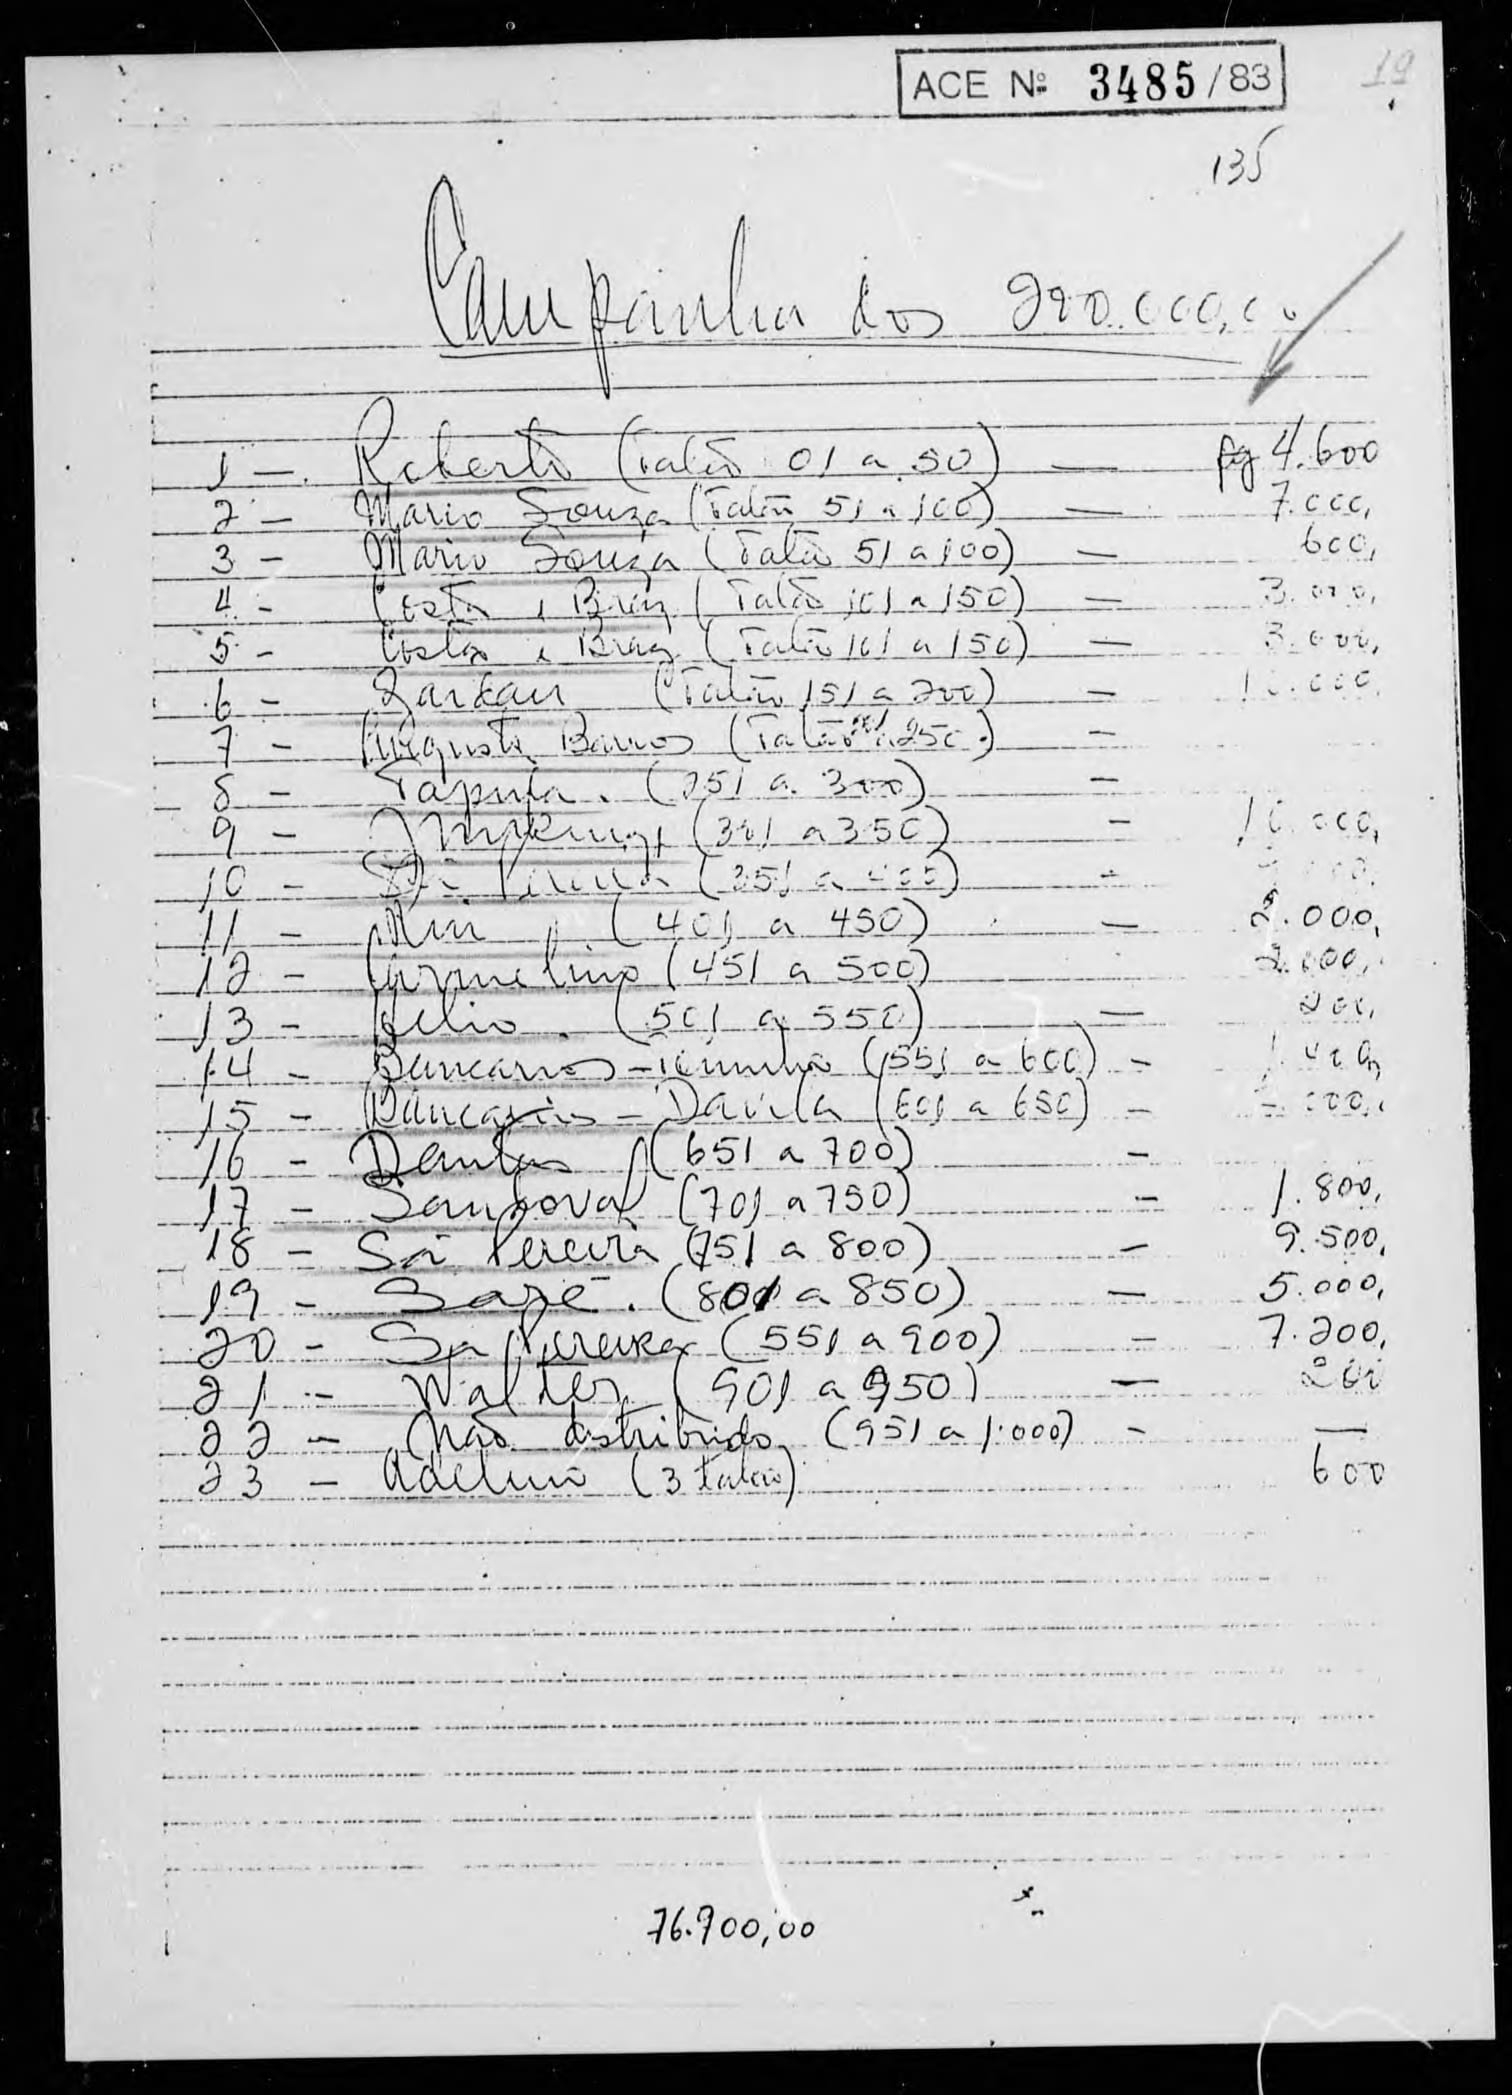 ACE Nº 3485/83
19
135
Campanha dos 200.000,00
1 - Roberto (Talão 01 a 50) — pg 4.600
2 - Mario Souza (Talão 51 a 100) — 7.000,
3 - Mario Souza (Talão 51 a 100) — 600,
4 - Costa e Braz (Talão 101 a 150) — 3.000,
5 - Costa e Braz (Talão 101 a 150) — 3.000,
6 - (Talão 151 a 200) — 10.000,
7 - Augusto Barros (Talão 201 a 250) —
8 - (251 a 300) —
9 - (301 a 350) — 10.000,
10 - Sá Pereira (351 a 400) -
11 - (401 a 450) — 2.000,
12 - (451 a 500) 2.000,
13 - Helio. (501 a 550) — 200,
14 - Bancarios - (551 a 600) - 1.400,
15 - Bancarios - Davila (601 a 650) -
16 - Dantas (651 a 700) -
17 - Sandoval (701 a 750) - 1.800,
18 - Sá Pereira (751 a 800) - 9.500,
19 - (801 a 850) — 5.000,
20 - Sá Pereira (551 a 900) - 7.200,
21 - Walter (901 a 950) — 200
22 - Não distribuido (951 a 1.000) - —
23 - Adelino (3 talão) 600
76.700,00